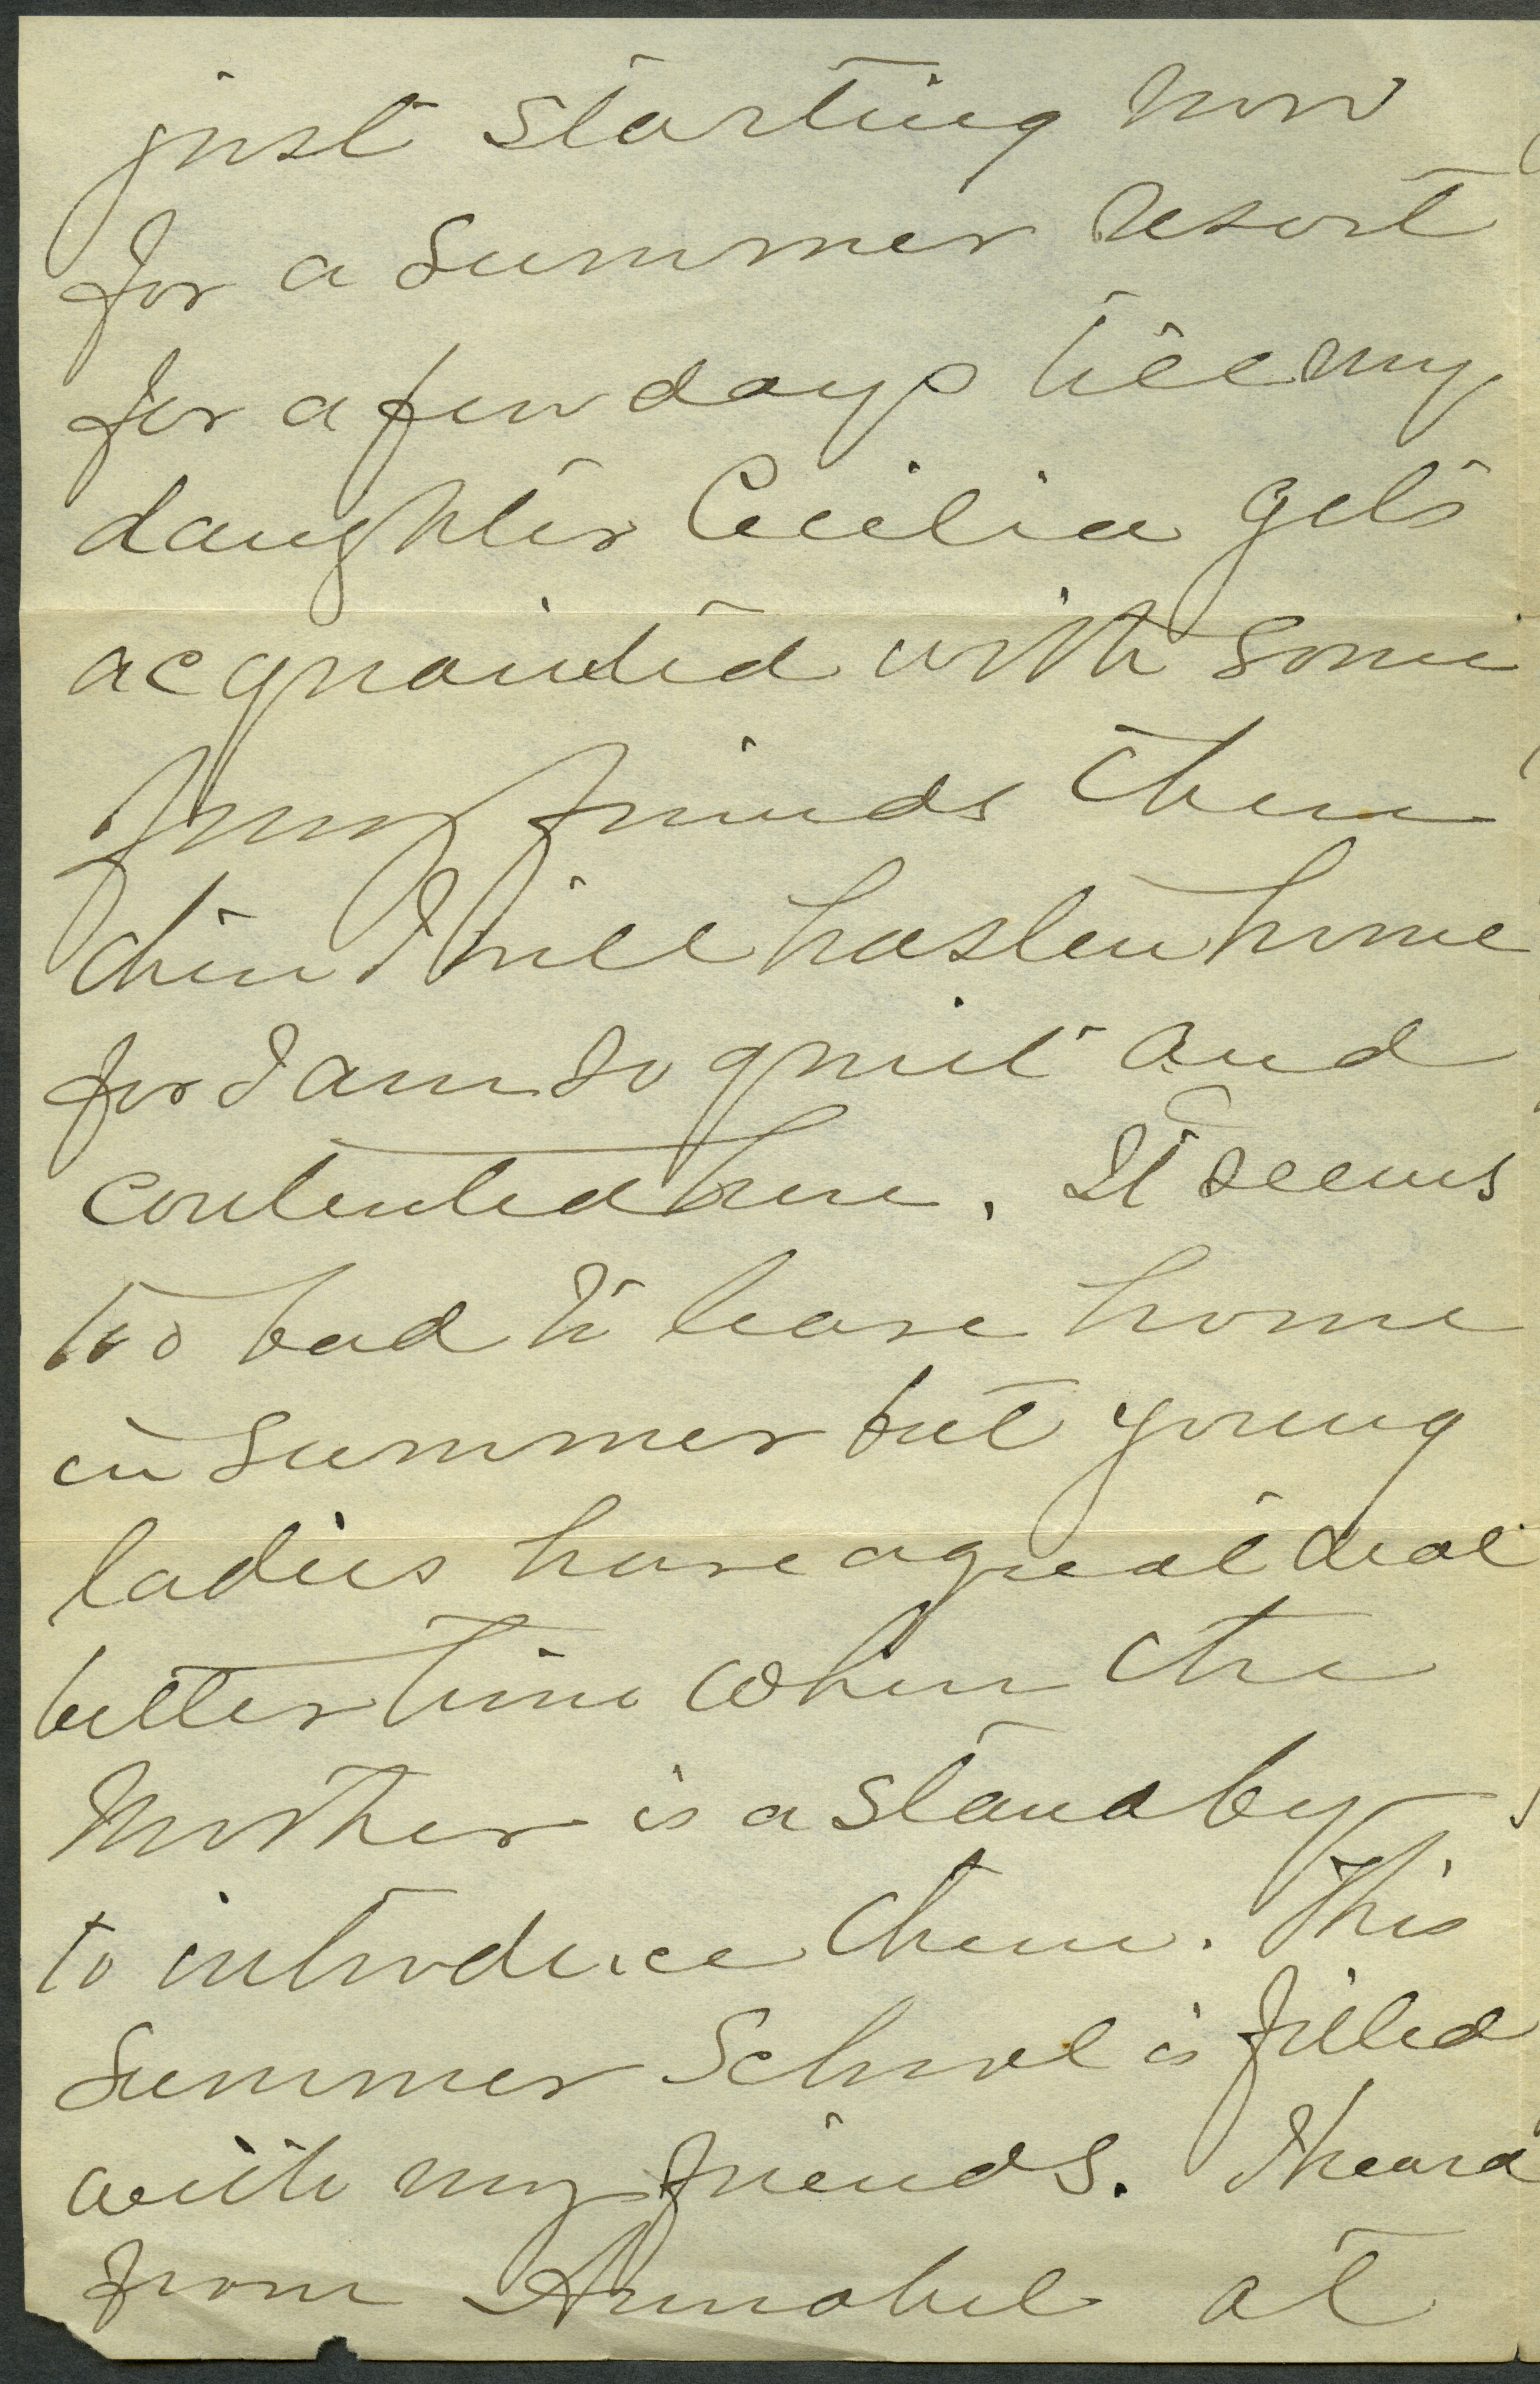 just starting now
for a summer resort
for a few days till my
daughter Cecilia gets
acquainted with some
of my friends there
then I will hasten home
for I am so quiet and
contented here. It seems
too bad to leave home
in summer but young
ladies have a great deal
better time when the
Mother is a stand by
to introduce them. This
Summer School is filled
with my friends. I heard
from Annabel at